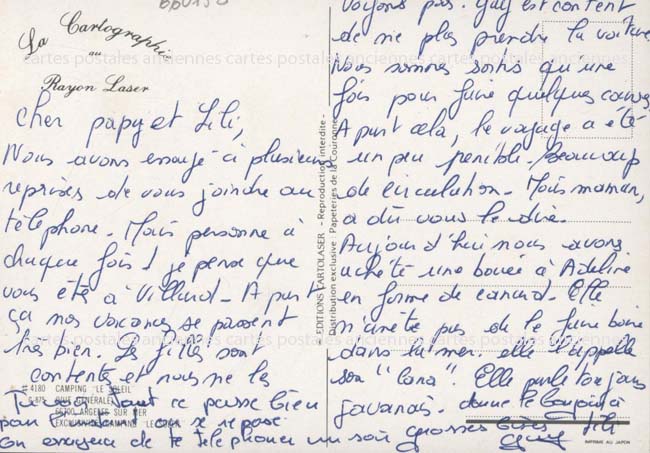 La Cartographie
au
Rayon Laser
Cher papy et Lili,
Nous avons essayé à plusieurs
reprises de vous joindre au
téléphone. Mais personne à
chaque fois! je pense que
vous été à Villard. A part
ça nos vacances se passent
très bien. Les filles sont
contente et nous ne les
voyons pas. Guy est content
de ne plus prendre la voiture
Nous sommes sortis qu'une
fois pour faire quelques courses
A part cela, le voyage a été
un peu penible. Beaucoup
de circulation. Mais maman,
a dû vous le dire.
Aujourd'hui nous avons
acheté une bouée à Adeline
en forme de canard. Elle
n'arrête pas de le faire boire
dans la mer. elle l'appelle
son "cana". Elle parle toujours
javanais. donne le bonjour à
Tu vois tout ce passe bien
pour l'instant on se repose.
On essayera de te telephoner un soir grosses bises Lili
Guy
# 4180 CAMPING LE SOLEIL
66700 ARGELES SUR MER
© EDITIONS CARTOLASER - Reproduction interdite -
Distribution exclusive : Papeteries de la Couronne
IMPRIMÉ AU JAPON
cartes postales anciennes cartes postales anciennes cartes postales